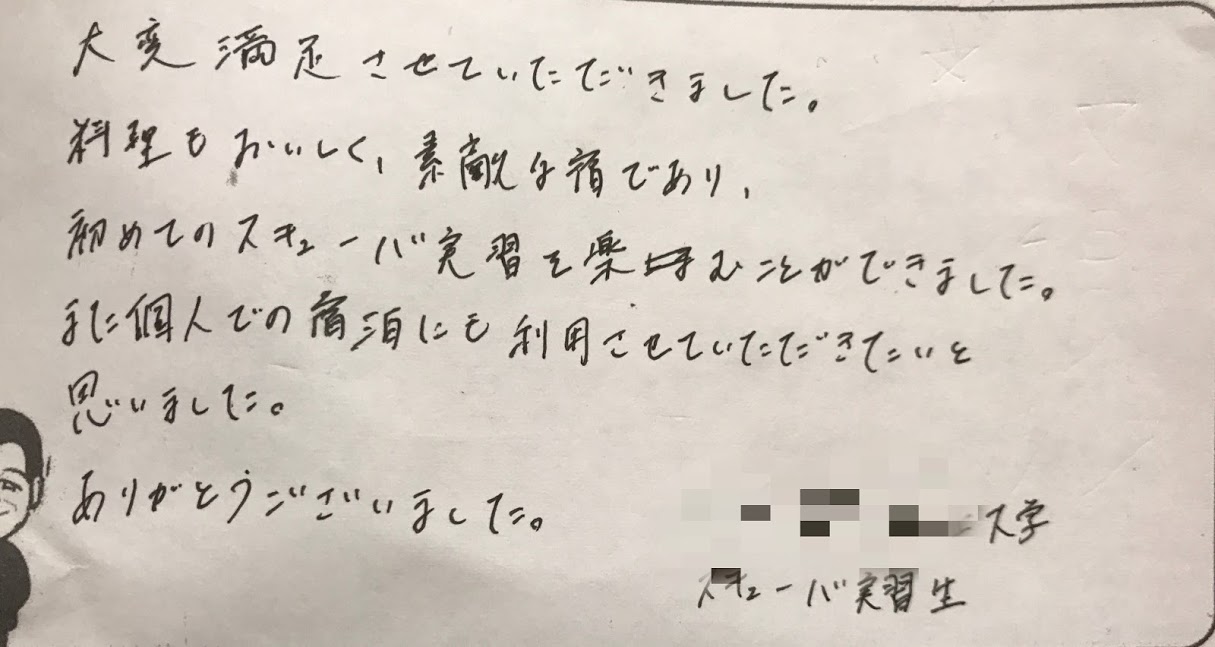 大変満足させていただきました。
料理もおいしく、素敵な宿であり、
初めてのスキューバ実習を楽むことができました。
また個人での宿泊にも利用させていただきたいと
思いました。
ありがとうございました。
大学
スキューバ実習生